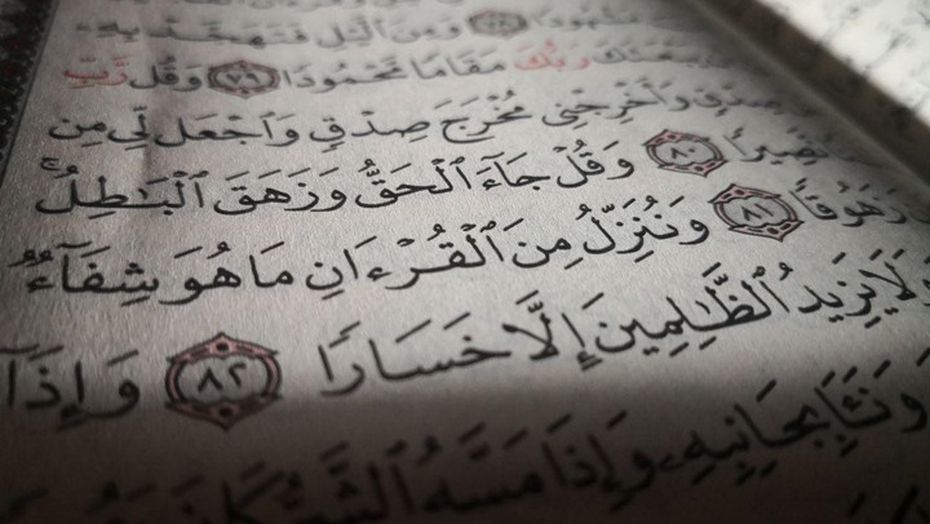 مَشْهُودًا ٧٨ وَمِنَ ٱلَّيْلِ فَتَهَجَّدْ بِهِۦ
يَبْعَثَكَ رَبُّكَ مَقَامًا مَّحْمُودًا ٧٩ وَقُل رَّبِّ
صِدْقٍ وَأَخْرِجْنِى مُخْرَجَ صِدْقٍ وَٱجْعَل لِّى مِن
نَّصِيرًا ٨٠ وَقُلْ جَآءَ ٱلْحَقُّ وَزَهَقَ ٱلْبَٰطِلُ ۚ
زَهُوقًا ٨١ وَنُنَزِّلُ مِنَ ٱلْقُرْءَانِ مَا هُوَ شِفَآءٌ
وَلَا يَزِيدُ ٱلظَّٰلِمِينَ إِلَّا خَسَارًا ٨٢ وَإِذَآ
وَنَـَٔا بِجَانِبِهِۦ وَإِذَا مَسَّهُ ٱلشَّرُّ كَانَ